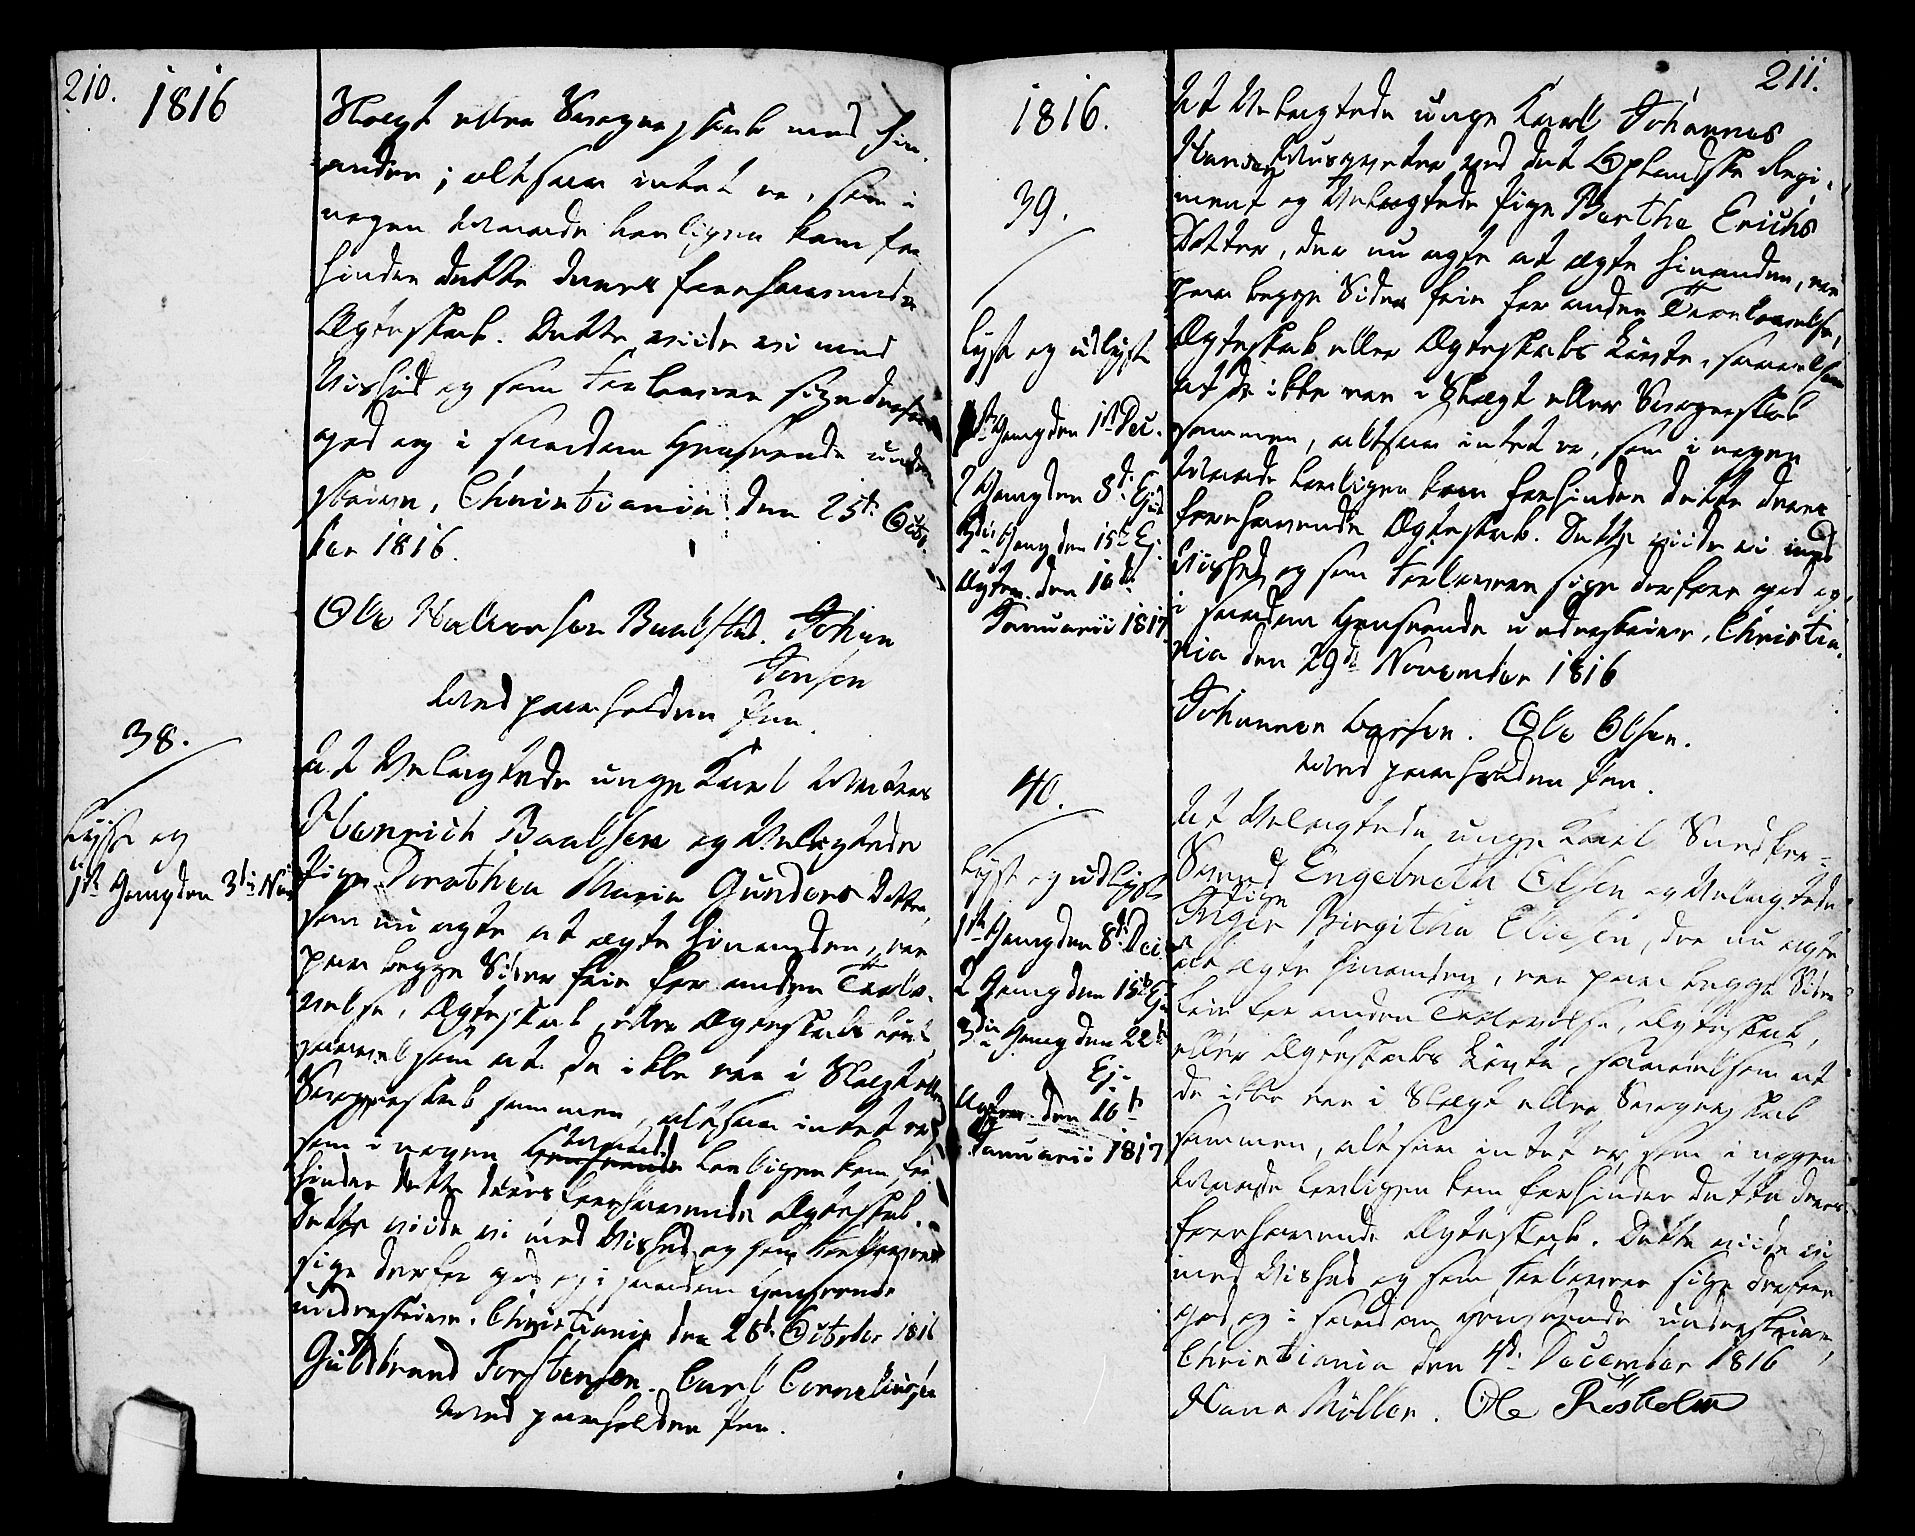 210.
1816
Slægt eller Svogerskab med hin-
anden; altsaa intet er, som i
nogen Maade lovligen kan for-
hindre dette deres forehavende
Ægteskab. Dette viide vi med
Vished og som Forlovere sige derfor
god og i saadan Henseende under-
skrive. Christiania den 25de Octo-
ber 1816.
Ole Halvorsen Baalstad. Johan
Jensen
Med paaholden Pen.
38.
Lyst og
1ste Gang den 3die Nov.
At Velagtede unge Karl
Henrich Baalsen og Velagtede
Pige Dorothea Maria Gunders Datter,
som nu agte at ægte hinanden, ere
paa begge Sider frie for anden Trolo-
velse, Ægteskab eller Ægteskabs Løvte,
saavelsom at de ikke ere i Slægt eller
Svogerskab sammen, altsaa intet er,
som i nogen Maade lovligen kan for-
hindre dette deres forehavende Ægteskab.
Dette viide vi med Vished og som Forlovere
sige derfor god og i saadan Henseende
underskrive. Christiania den 28de October 1816
Guldbrand Torstensen. Carl Corneliusen
Med paaholden Pen.
1816.
39.
Lyst og udlyst
1ste Gang den 1ste Dec.
2 Gang den 8de Ejusd
3die Gang den 15de Ej.
Ægtev. den 10de
Januarii 1817.
40.
Lyst og udlyst
1ste Gang den 8de Dec.
2 Gang den 15de Ej.
3die Gang den 22de
Ej.
Ægtev. den 10de
Januarii 1817
211.
At Velagtede unge Karl Johannes
Hansen Musqueteer ved det Oplandske Regi-
ment og Velagtede Pige Berthe Erichs
Datter, der nu agte at ægte hinanden, ere
paa begge Sider frie for anden Trolovelse,
Ægteskab eller Ægteskabs Løvte, saavelsom
at de ikke ere i Slægt eller Svogerskab
sammen, altsaa intet er, som i nogen
Maade lovligen kan forhindre dette deres
forehavende Ægteskab. Dette viide vi med
Vished og som Forlovere sige derfore god og
i saadan Henseende underskrive. Christia-
nia den 29de November 1816
Johannes Larsen. Ole Olsen.
Med paaholden Pen.
At Velagtede unge Karl
Svend Engebreth Olsen og Velagtede
Pige
Inger Birgitha Eliesen, der nu agte
at ægte hinanden, ere paa begge Sider
frie for anden Trolovelse, Ægteskab,
eller Ægteskabs Løvte, saavelsom at
de ikke ere i Slægt eller Svogerskab
sammen, altsaa intet er, som i nogen
Maade lovligen kan forhindre dette deres
forehavende Ægteskab. Dette viide vi
med Vished og som Forlovere sige derfore
god og i saadan Henseende underskrive,
Christiania den 4de December 1816
Hans Møller. Ole Røsholm